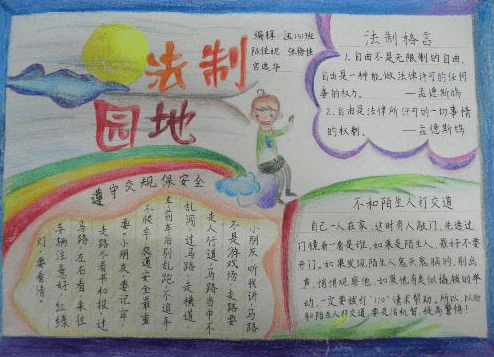 法制
园地
编辑：五(3)班
阮佳妮 张格佳
官逸华
法制格言
1.自由不是无限制的自由，
自由是一种能做法律许可的任何
事的权力。 ——孟德斯鸠
2.自由是法律所许可的一切事情
的权利。 ——孟德斯鸠
遵守交规保安全
小朋友听我讲，马路
不是游戏场，走路要
走人行道，马路当中不
乱闯，过马路，走横道
车前车后别乱跑，不追车
不候车，交通安全最重
要。小朋友，要记牢，
走路不看书和报，过
马路，左右看，来往
车辆注意好，红绿
灯，要看清。
不和陌生人打交道
自己一人在家，这时有人敲门，先透过
门镜看一看是谁，如果是陌生人，最好不要
开门。如果发现陌生人鬼头鬼脑的，别出
声，悄悄观察他，如果他有类似撬锁的举
动，一定要拨打"110"请求帮助。所以，以后
和陌生人打交道，要灵活机智，提高警惕！